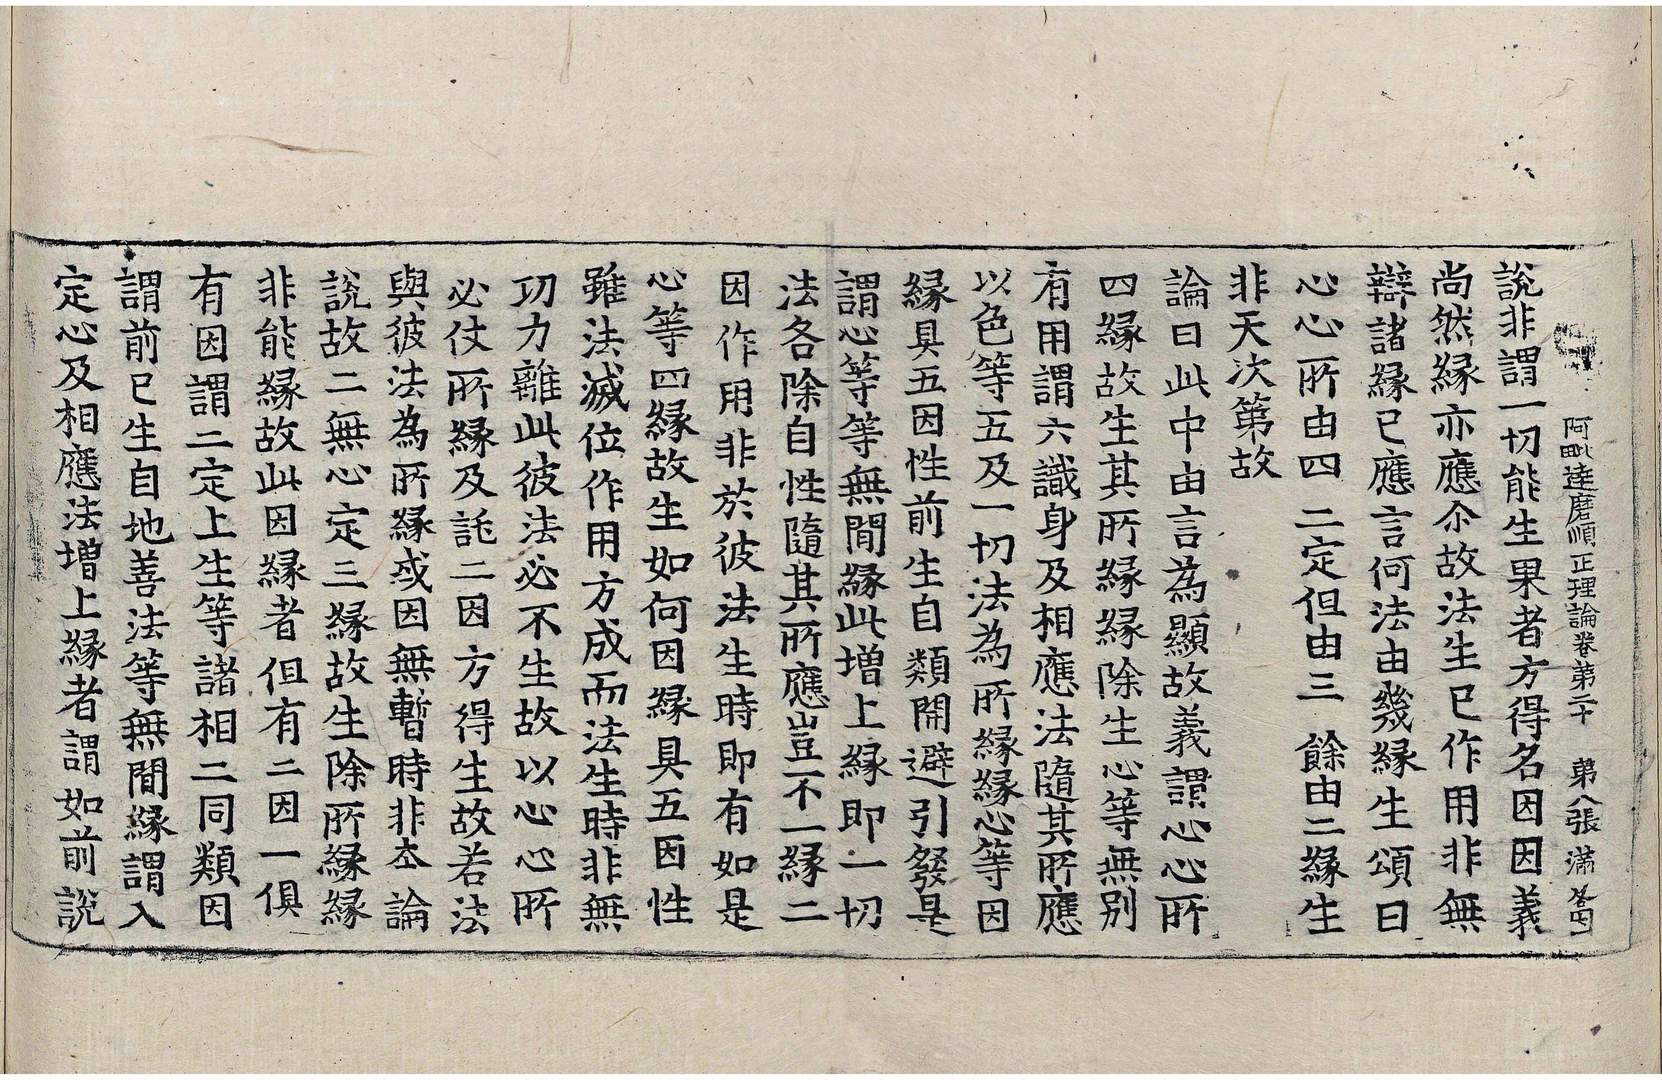 阿毗達磨順正理論卷第二十　第八張　滿
說非謂一切能生果者方得名因因義
尚然緣亦應尒故法生已作用非無
辯諸緣已應言何法由幾緣生頌曰
心心所由四　二定但由三　餘由二緣生
非天次第故
論曰此中由言為顯故義謂心心所
四緣故生其所緣緣除生心等無別
有用謂六識身及相應法隨其所應
以色等五及一切法為所緣緣心等因
緣具五因性前生自類開避引發是
謂心等等無間緣此增上緣即一切
法各除自性隨其所應豈不一緣二
因作用非於彼法生時即有如是
心等四緣故生如何因緣具五因性
雖法滅位作用方成而法生時非無
功力離此彼法必不生故以心心所
必仗所緣及託二因方得生故若法
與彼法為所緣或因無暫時非本論
說故二無心定三緣故生除所緣緣
非能緣故此因緣者但有二因一俱
有因謂二定上生等諸相二同類因
謂前已生自地善法等無間緣謂入
定心及相應法增上緣者謂如前說